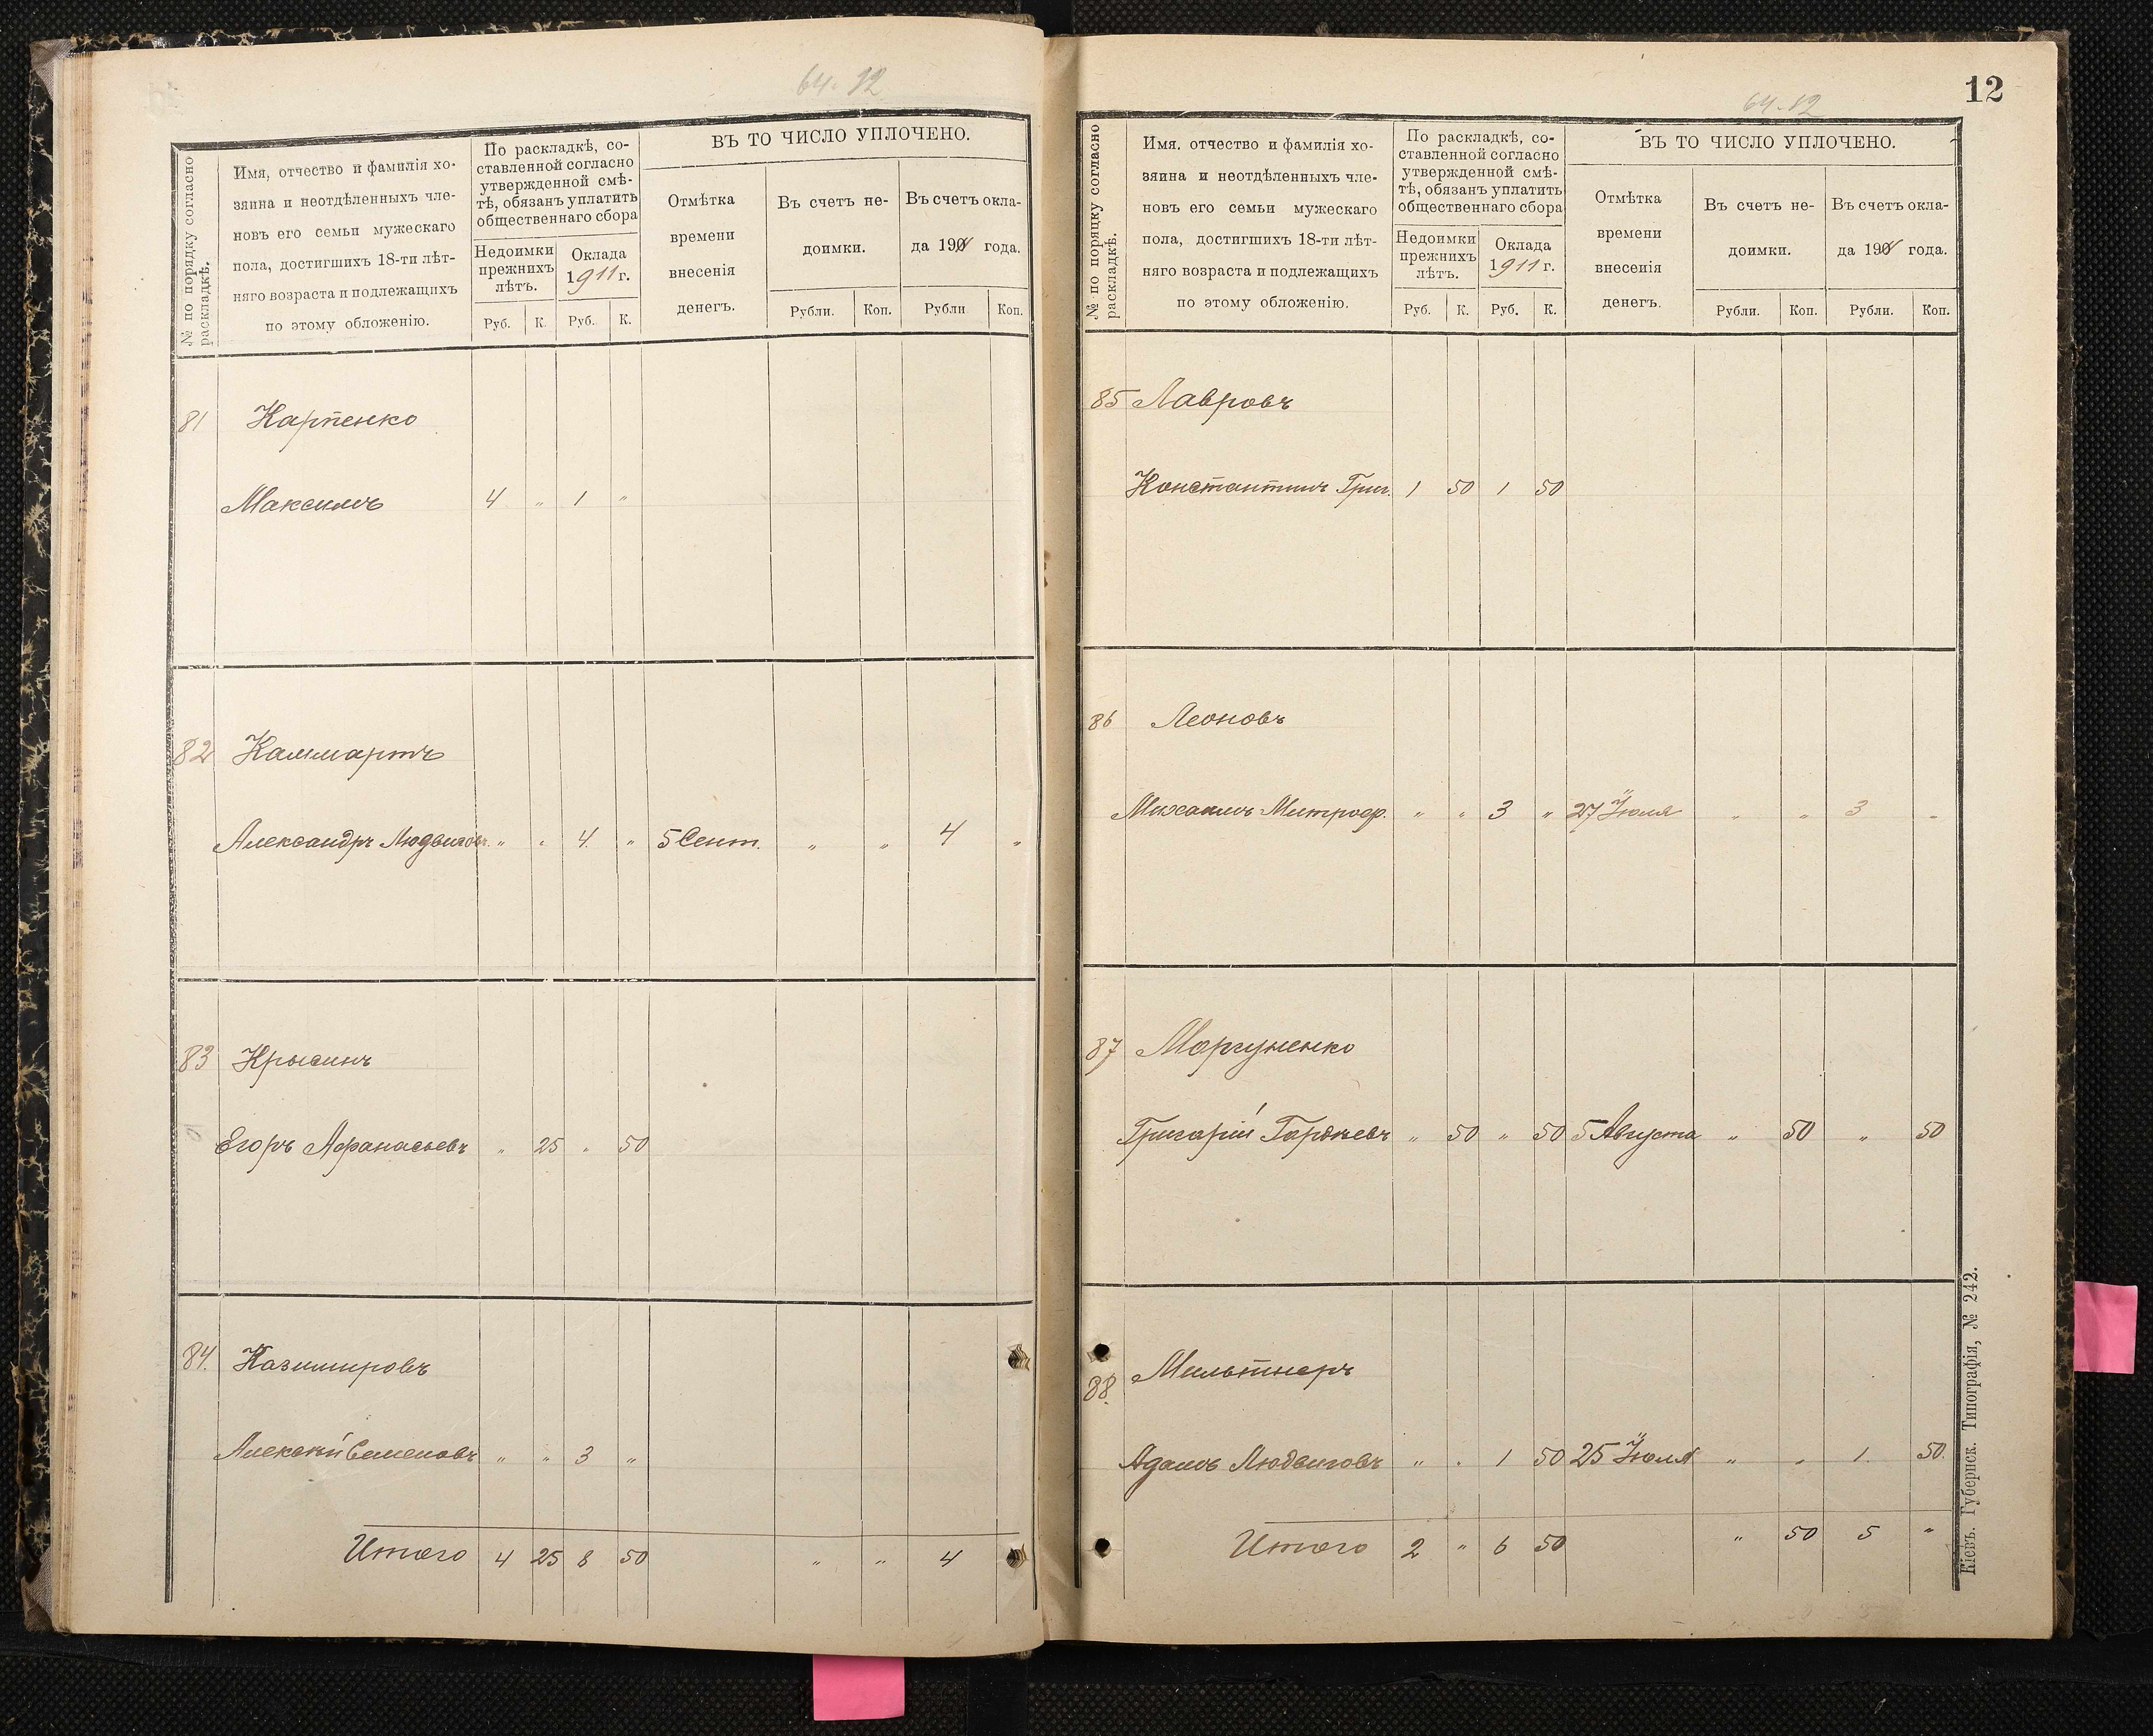 64. 12
№ по порядку согласно раскладкѣ.
Имя, отчество и фамилія хо-
зяина и неотдѣленныхъ чле-
новъ его семьи мужескаго
пола, достигшихъ 18-ти лѣт-
няго возраста и подлежащихъ
по этому обложенію.
По раскладкѣ, со-
ставленной согласно
утвержденной смѣ-
тѣ, обязанъ уплатить
общественнаго сбора
Недоимки
прежнихъ
лѣтъ.
Оклада
1911 г.
Руб. К. Руб. К.
ВЪ ТО ЧИСЛО УПЛОЧЕНО.
Отмѣтка
времени
внесенія
денегъ.
Въ счетъ не-
доимки.
Въ счетъ окла-
да 190 года.
Рубли. Коп. Рубли Коп.
81 Карпенко
Максимъ 4 „ 1 „
82 Каммартъ
Александръ Людвигов. „ „ 4. „ 5 Сент. „ „ 4 „
83 Крысинъ
Егоръ Афанасьевъ „ 25 „ 50
84. Казимировъ
Алексѣй Семеновъ „ „ 3 „
Итого 4 25 8 50 „ „ 4
12
64. 12
№ по поряцку согласно раскладкѣ.
Имя. отчество и фамилія хо-
зяина и неотдѣленныхъ чле-
новъ его семьи мужескаго
пола, достигшихъ 18-ти лѣт-
няго возраста и подлежащихъ
по этому обложенію.
По раскладкѣ, со-
ставленной согласно
утвержденной смѣ-
тѣ, обязанъ уплатить
общественнаго сбора
Недоимки
прежнихъ
лѣтъ.
Оклада
1911 г.
Руб. К. Руб. К.
ВЪ ТО ЧИСЛО УПЛОЧЕНО.
Отмѣтка
времени
внесенія
денегъ.
Въ счетъ не-
доимки.
Въ счетъ окла-
да 190 года.
Рубли. Коп. Рубли. Коп.
85 Лавровъ
Константинъ Григ. 1 50 1 50
86 Леоновъ
Михаилъ Митроф. „ „ 3 „ 27 Іюля „ „ 3 „
87 Моргуненко
Григорій Гордѣевъ „ 50 „ 50 5 Августа „ 50 „ 50
88. Мильтнеръ
Адамъ Людвиговъ „ „ 1 50 25 Іюля „ „ 1. 50.
Итого 2 „ 6 50 „ 50 5 „
Кіевъ. Губернск. Типографія, № 242.